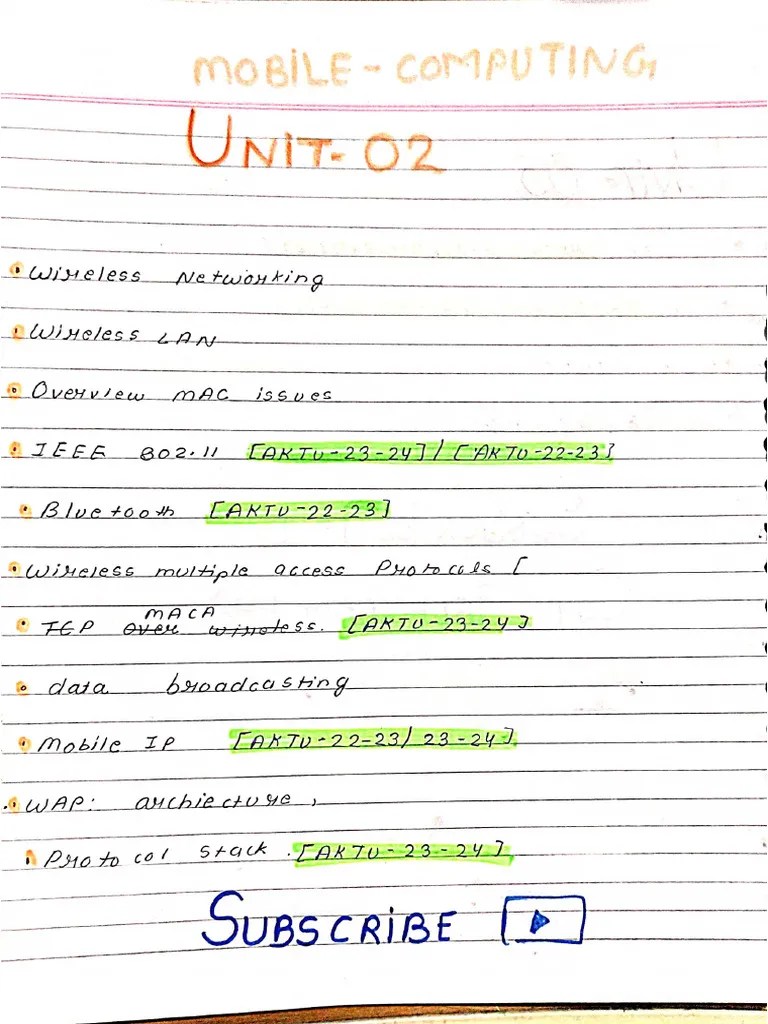 MOBILE - COMPUTING
UNIT- 02
Wireless Networking
Wireless LAN
Overview MAC issues
IEEE 802.11 [AKTU-23-24] / [AKTU-22-23]
Bluetooth [AKTU-22-23]
Wireless multiple access Protocols [
MACA
TCP over wireless. [AKTU-23-24]
data broadcasting
Mobile IP [AKTU-22-23/ 23-24]
WAP: archiecture,
Protocol stack. [AKTU-23-24]
SUBSCRIBE